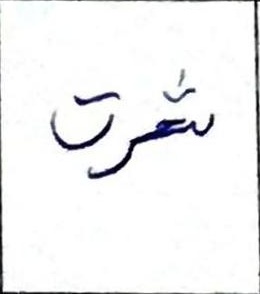 شعرت